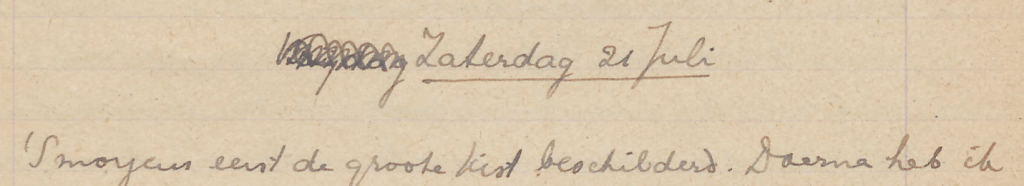 Zaterdag 21 Juli
'Smorgens eerst de groote kist beschilderd. Daarna heb ik